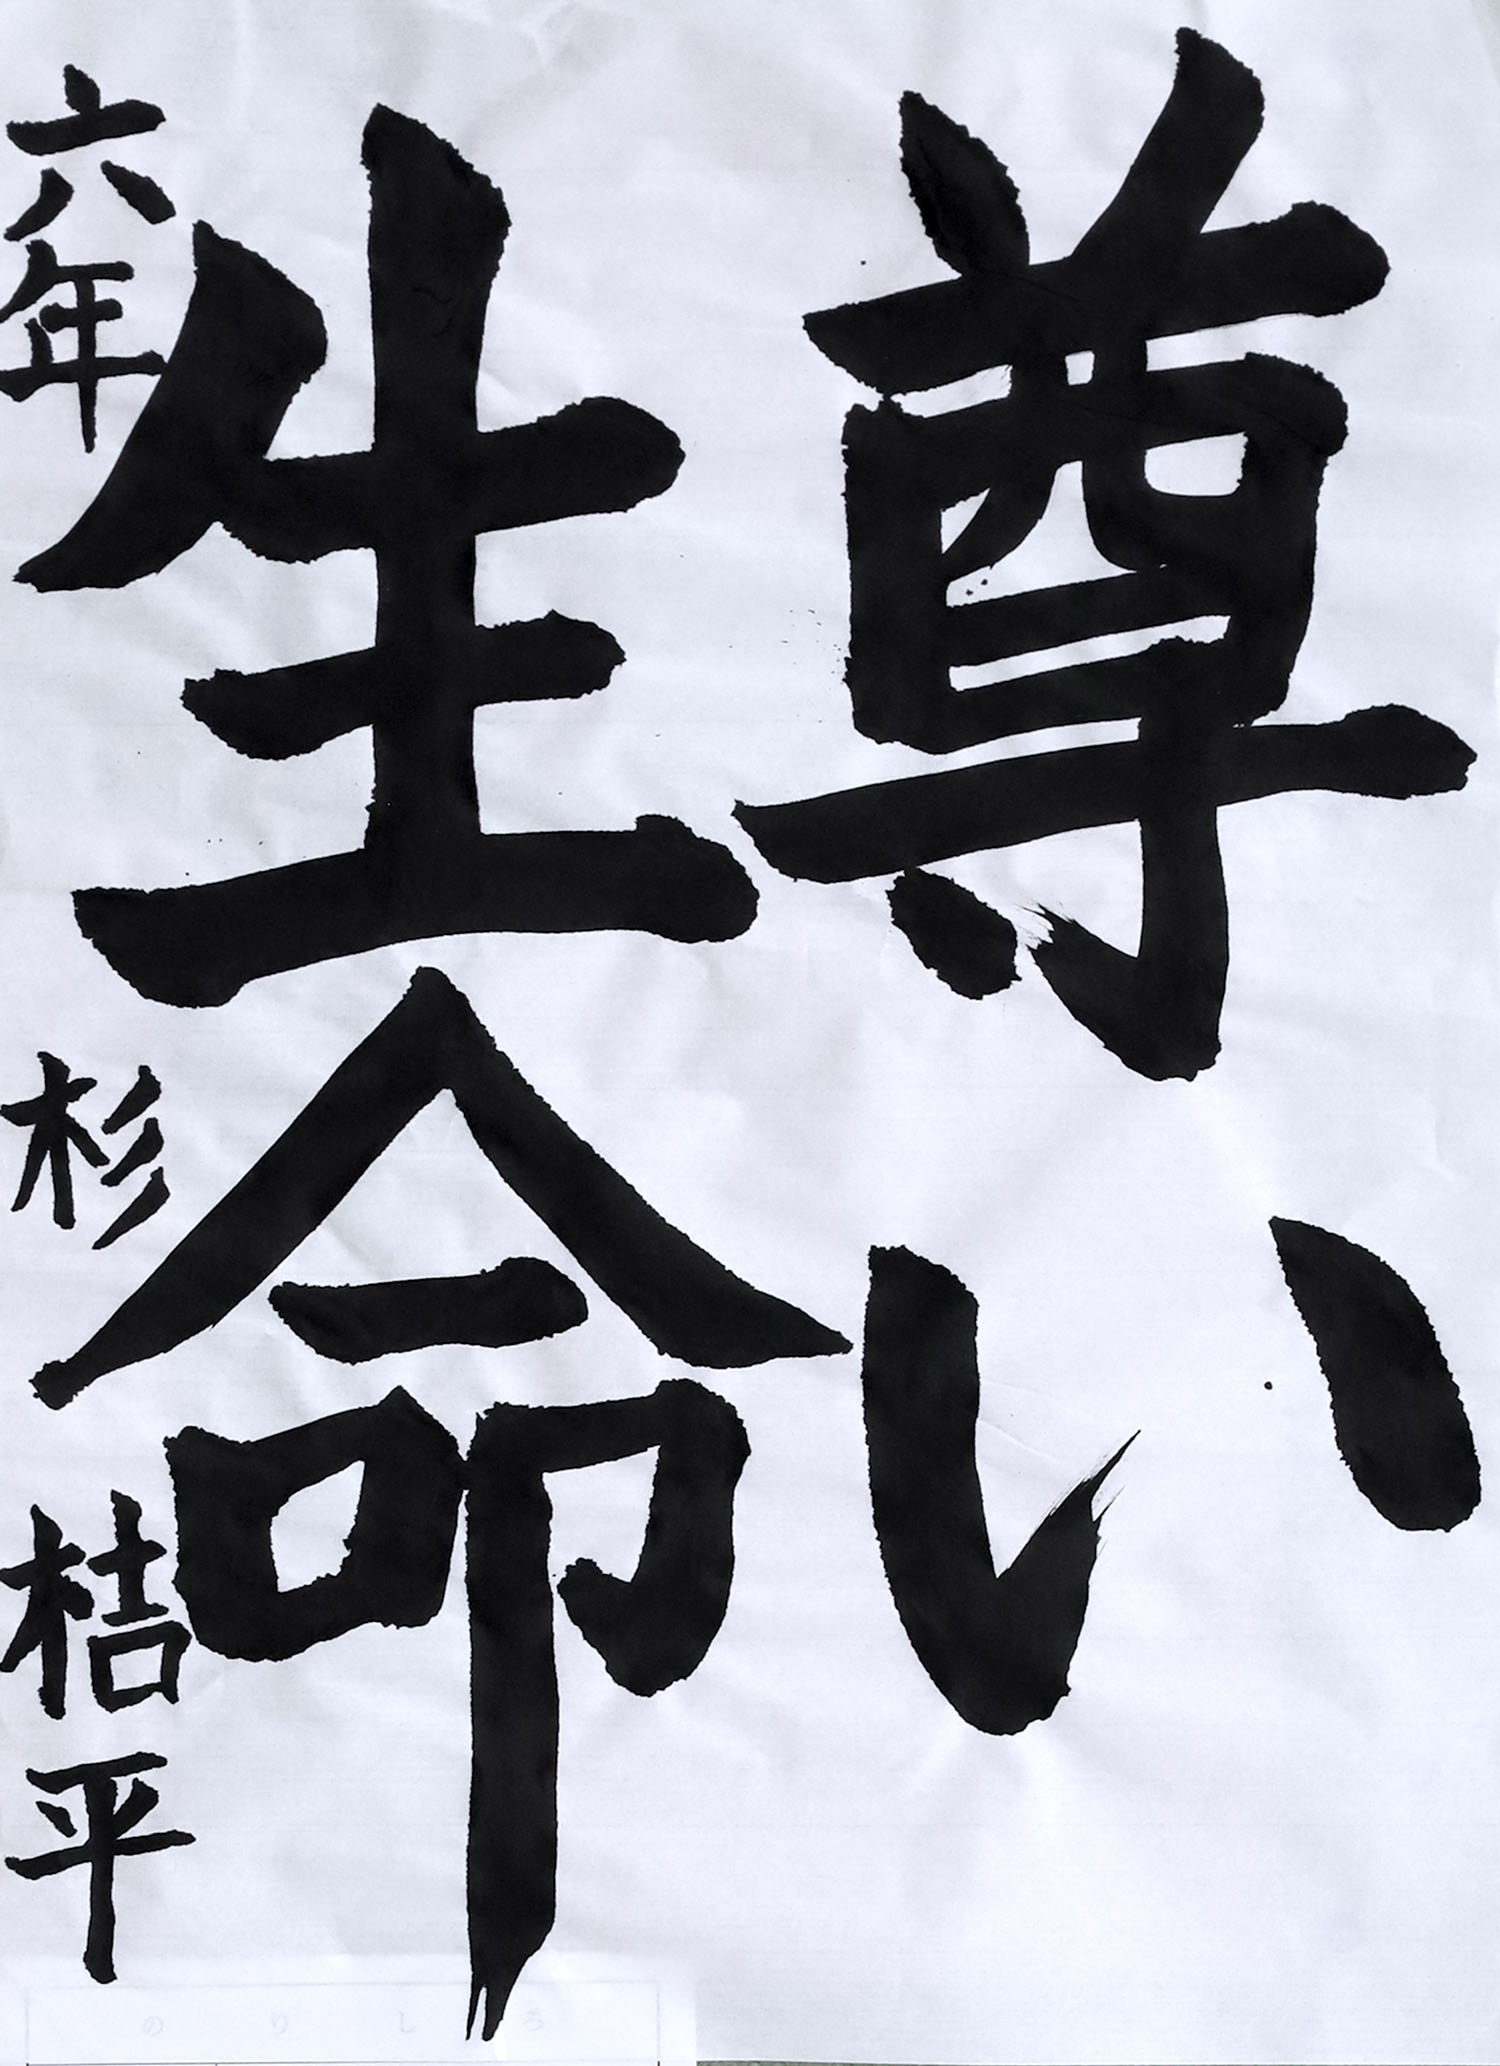 尊い
生命
六年 杉 桔平
のりしろ